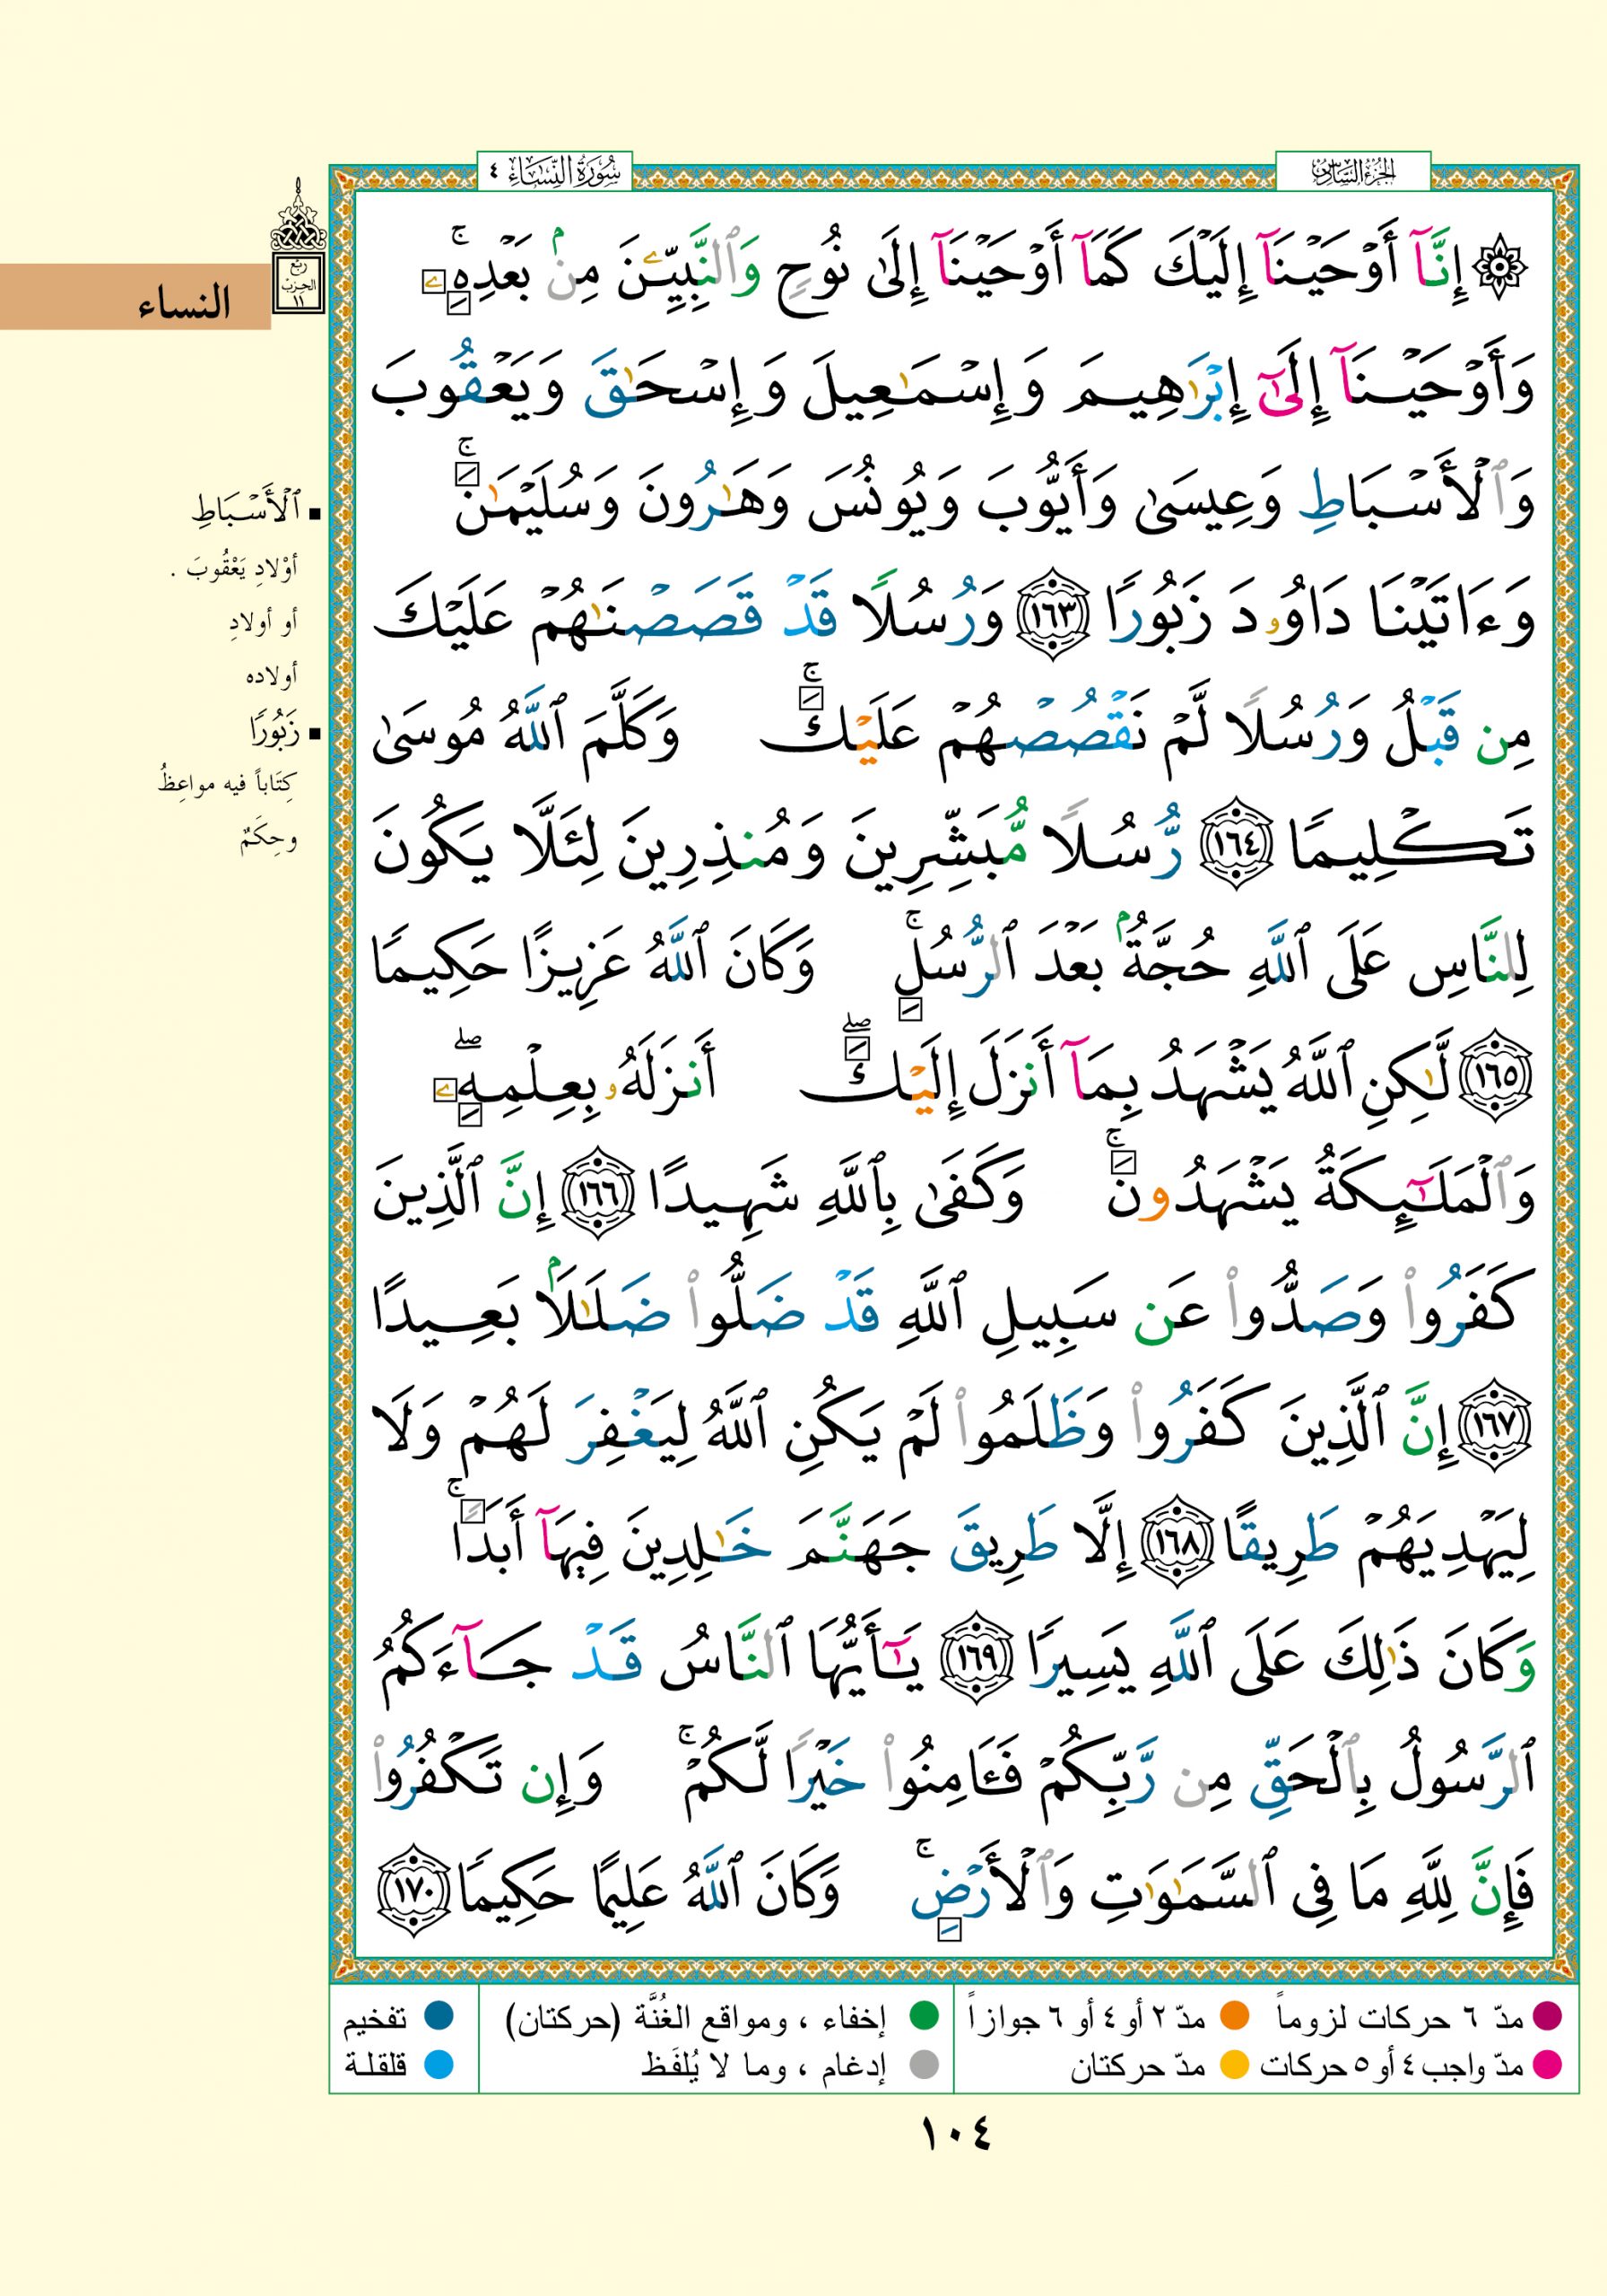 الجزء السادس
سورة النساء ٤
۞ إِنَّآ أَوْحَيْنَآ إِلَيْكَ كَمَآ أَوْحَيْنَآ إِلَىٰ نُوحٍ وَٱلنَّبِيِّـۧنَ مِنۢ بَعْدِهِۦ ۚ
وَأَوْحَيْنَآ إِلَىٰٓ إِبْرَٰهِيمَ وَإِسْمَـٰعِيلَ وَإِسْحَـٰقَ وَيَعْقُوبَ
وَٱلْأَسْبَاطِ وَعِيسَىٰ وَأَيُّوبَ وَيُونُسَ وَهَـٰرُونَ وَسُلَيْمَـٰنَ ۚ
وَءَاتَيْنَا دَاوُۥدَ زَبُورًا ١٦٣ وَرُسُلًا قَدْ قَصَصْنَـٰهُمْ عَلَيْكَ
مِن قَبْلُ وَرُسُلًا لَّمْ نَقْصُصْهُمْ عَلَيْكَ ۚ وَكَلَّمَ ٱللَّهُ مُوسَىٰ
تَكْلِيمًا ١٦٤ رُّسُلًا مُّبَشِّرِينَ وَمُنذِرِينَ لِئَلَّا يَكُونَ
لِلنَّاسِ عَلَى ٱللَّهِ حُجَّةٌۢ بَعْدَ ٱلرُّسُلِ ۚ وَكَانَ ٱللَّهُ عَزِيزًا حَكِيمًا
١٦٥ لَّـٰكِنِ ٱللَّهُ يَشْهَدُ بِمَآ أَنزَلَ إِلَيْكَ ۖ أَنزَلَهُۥ بِعِلْمِهِۦ ۖ
وَٱلْمَلَـٰٓئِكَةُ يَشْهَدُونَ ۚ وَكَفَىٰ بِٱللَّهِ شَهِيدًا ١٦٦ إِنَّ ٱلَّذِينَ
كَفَرُوا۟ وَصَدُّوا۟ عَن سَبِيلِ ٱللَّهِ قَدْ ضَلُّوا۟ ضَلَـٰلًۢا بَعِيدًا
١٦٧ إِنَّ ٱلَّذِينَ كَفَرُوا۟ وَظَلَمُوا۟ لَمْ يَكُنِ ٱللَّهُ لِيَغْفِرَ لَهُمْ وَلَا
لِيَهْدِيَهُمْ طَرِيقًا ١٦٨ إِلَّا طَرِيقَ جَهَنَّمَ خَـٰلِدِينَ فِيهَآ أَبَدًا ۚ
وَكَانَ ذَٰلِكَ عَلَى ٱللَّهِ يَسِيرًا ١٦٩ يَـٰٓأَيُّهَا ٱلنَّاسُ قَدْ جَآءَكُمُ
ٱلرَّسُولُ بِٱلْحَقِّ مِن رَّبِّكُمْ فَـَٔامِنُوا۟ خَيْرًا لَّكُمْ ۚ وَإِن تَكْفُرُوا۟
فَإِنَّ لِلَّهِ مَا فِى ٱلسَّمَـٰوَٰتِ وَٱلْأَرْضِ ۚ وَكَانَ ٱللَّهُ عَلِيمًا حَكِيمًا ١٧٠
ربع
الحزب
١١
النساء
ٱلْأَسْبَاطِ
أوْلادِ يَعْقُوبَ .
أو أولادِ
أولاده
زَبُورًا
كِتَاباً فيه مواعِظُ
وحِكَمٌ
مدّ ٦ حركات لزوماً مدّ ٢ أو ٤ أو ٦ جوازاً إخفاء ، ومواقع الغُنَّة (حركتان) تفخيم
مدّ واجب ٤ أو ٥ حركات مدّ حركتان إدغام ، وما لا يُلفَظ قلقلة
١٠٤